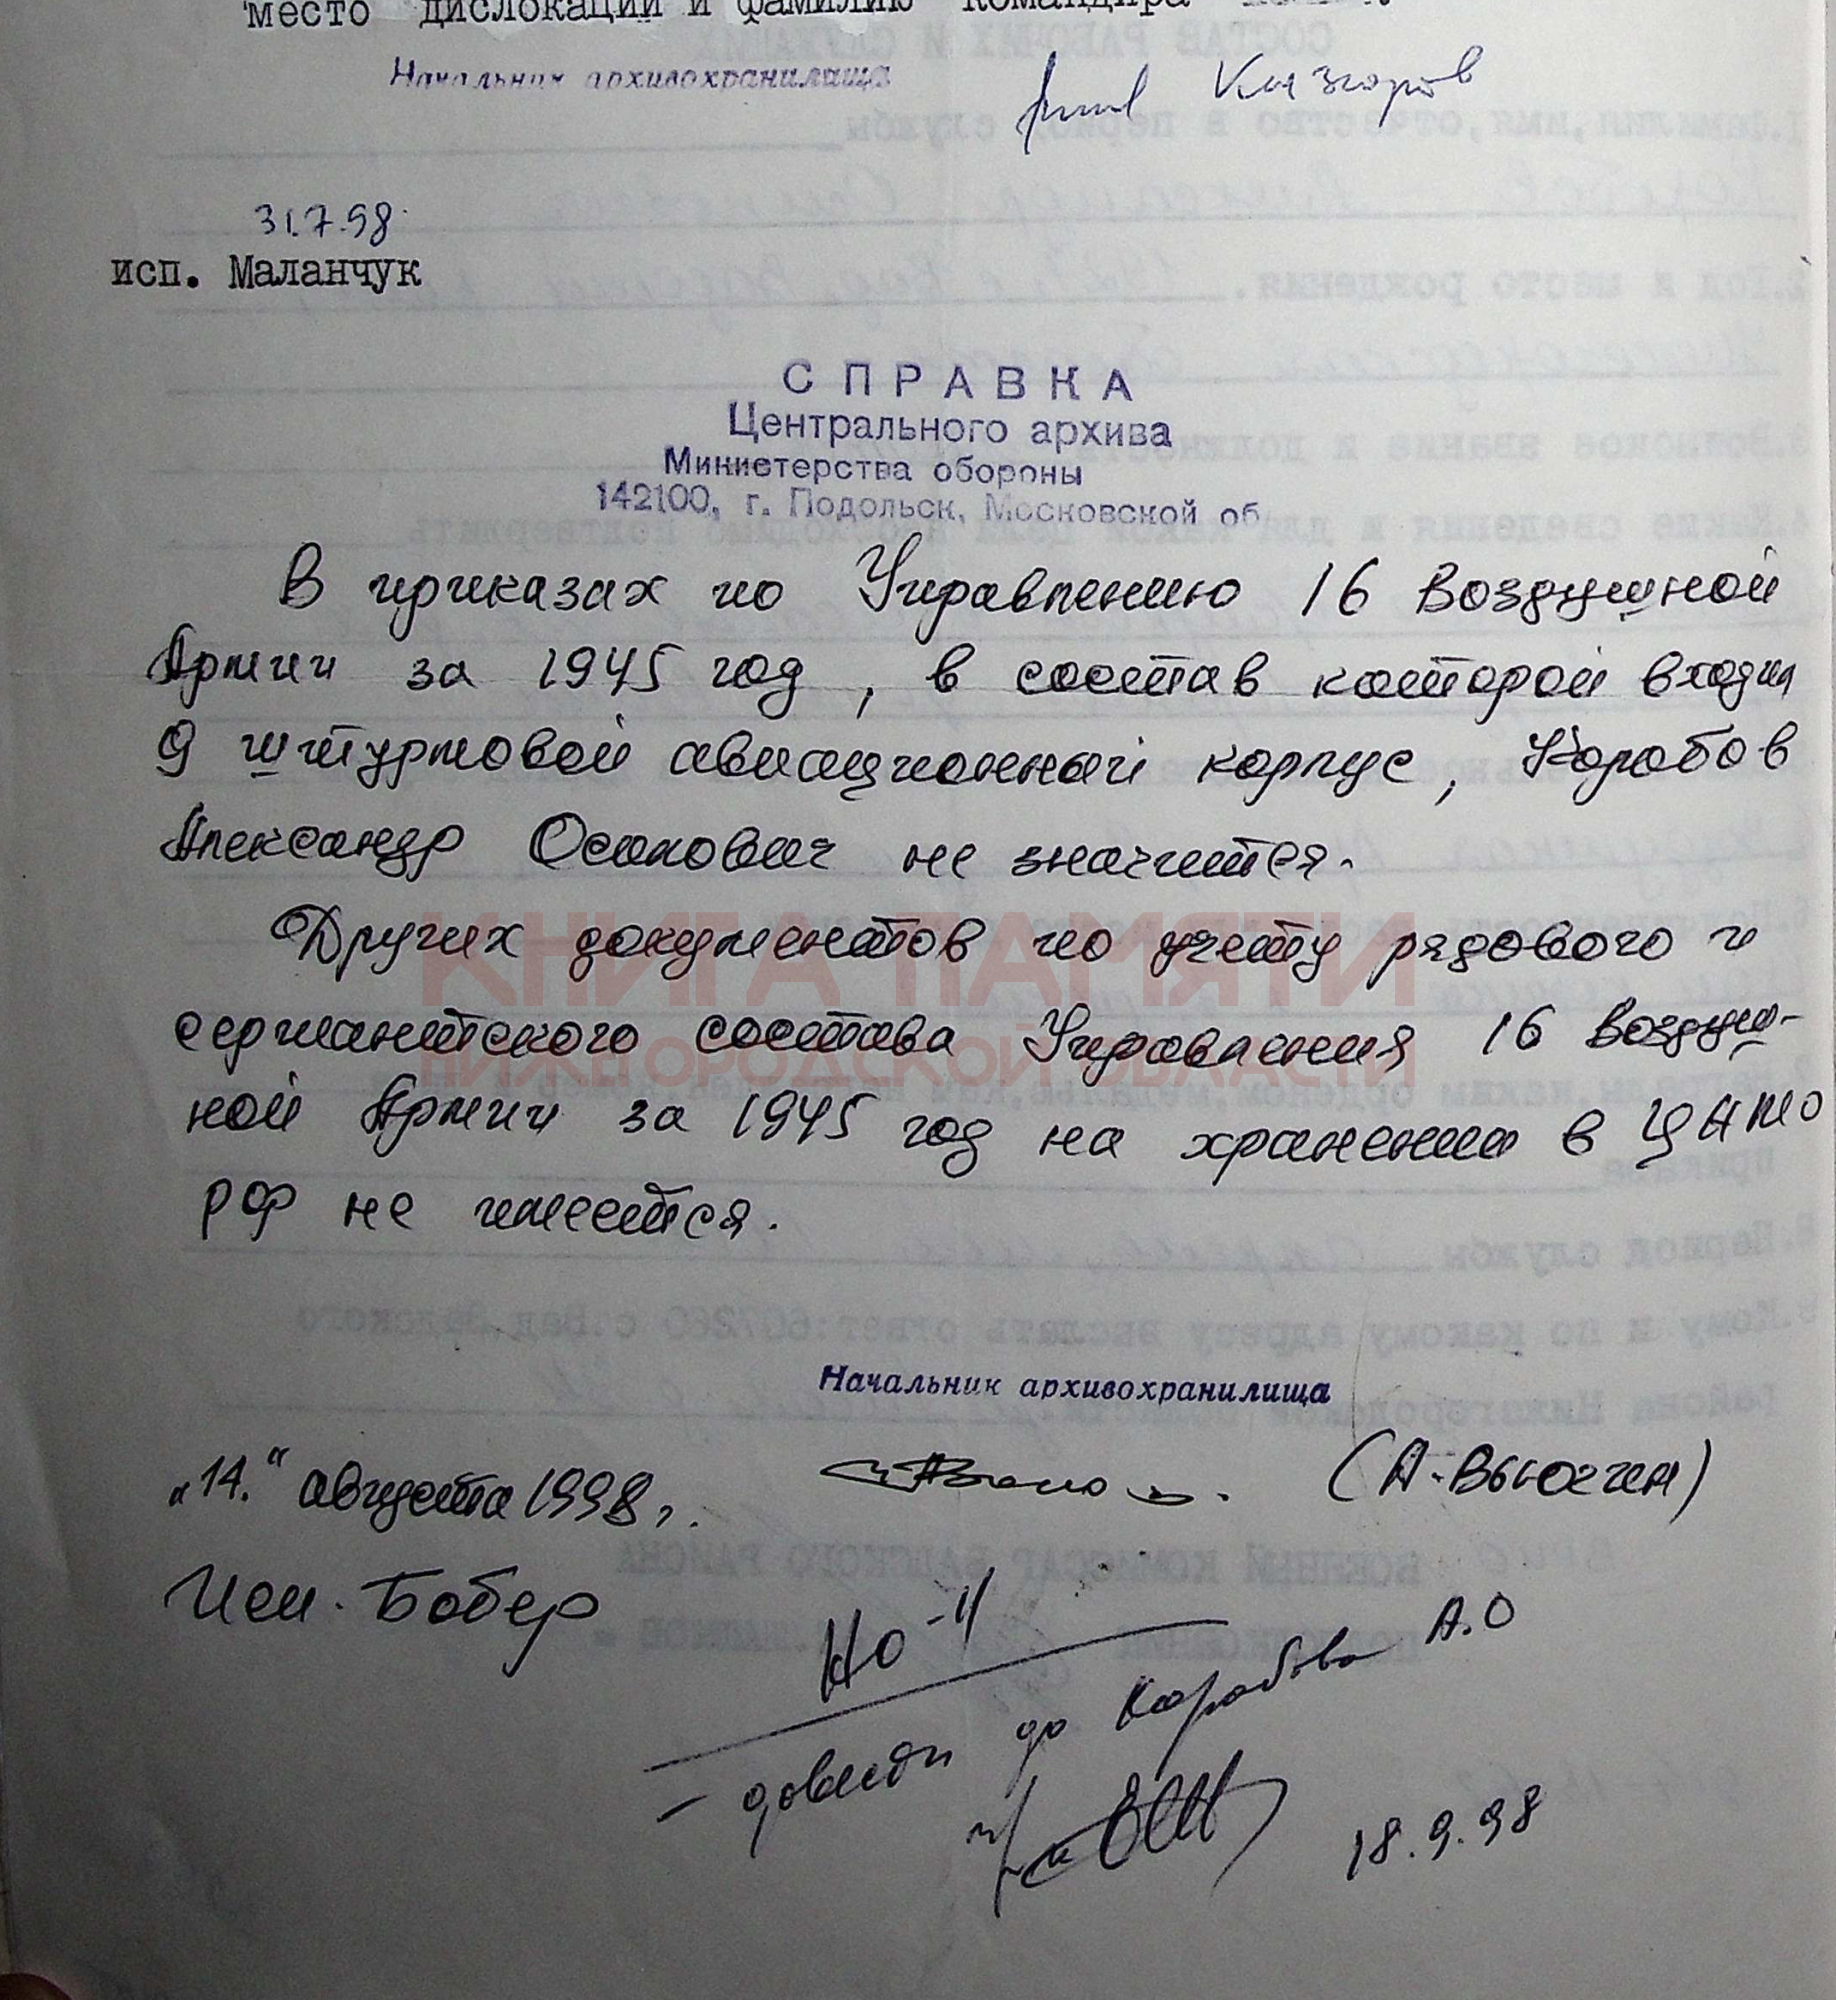 место дислокации и фамилию командира
Начальник архивохранилища
31.7.98
исп. Маланчук
СПРАВКА
Центрального архива
Министерства обороны
142100, г. Подольск, Московской об
В приказах по Управлению 16 Воздушной
Армии за 1945 год, в состав которой входил
9 штурмовой авиационный корпус, Коробов
Александр Осипович не значится.
Других документов по учету рядового и
сержантского состава Управления 16 Воздуш-
ной Армии за 1945 год на хранении в ЦАМО
РФ не имеется.
КНИГА ПАМЯТИ
НИЖЕГОРОДСКОЙ ОБЛАСТИ
Начальник архивохранилища
"14." августа 1998 г. (А. Вьюгин)
Исп. Бобер
НО-4
- довести до Коробова А.О
18.9.98